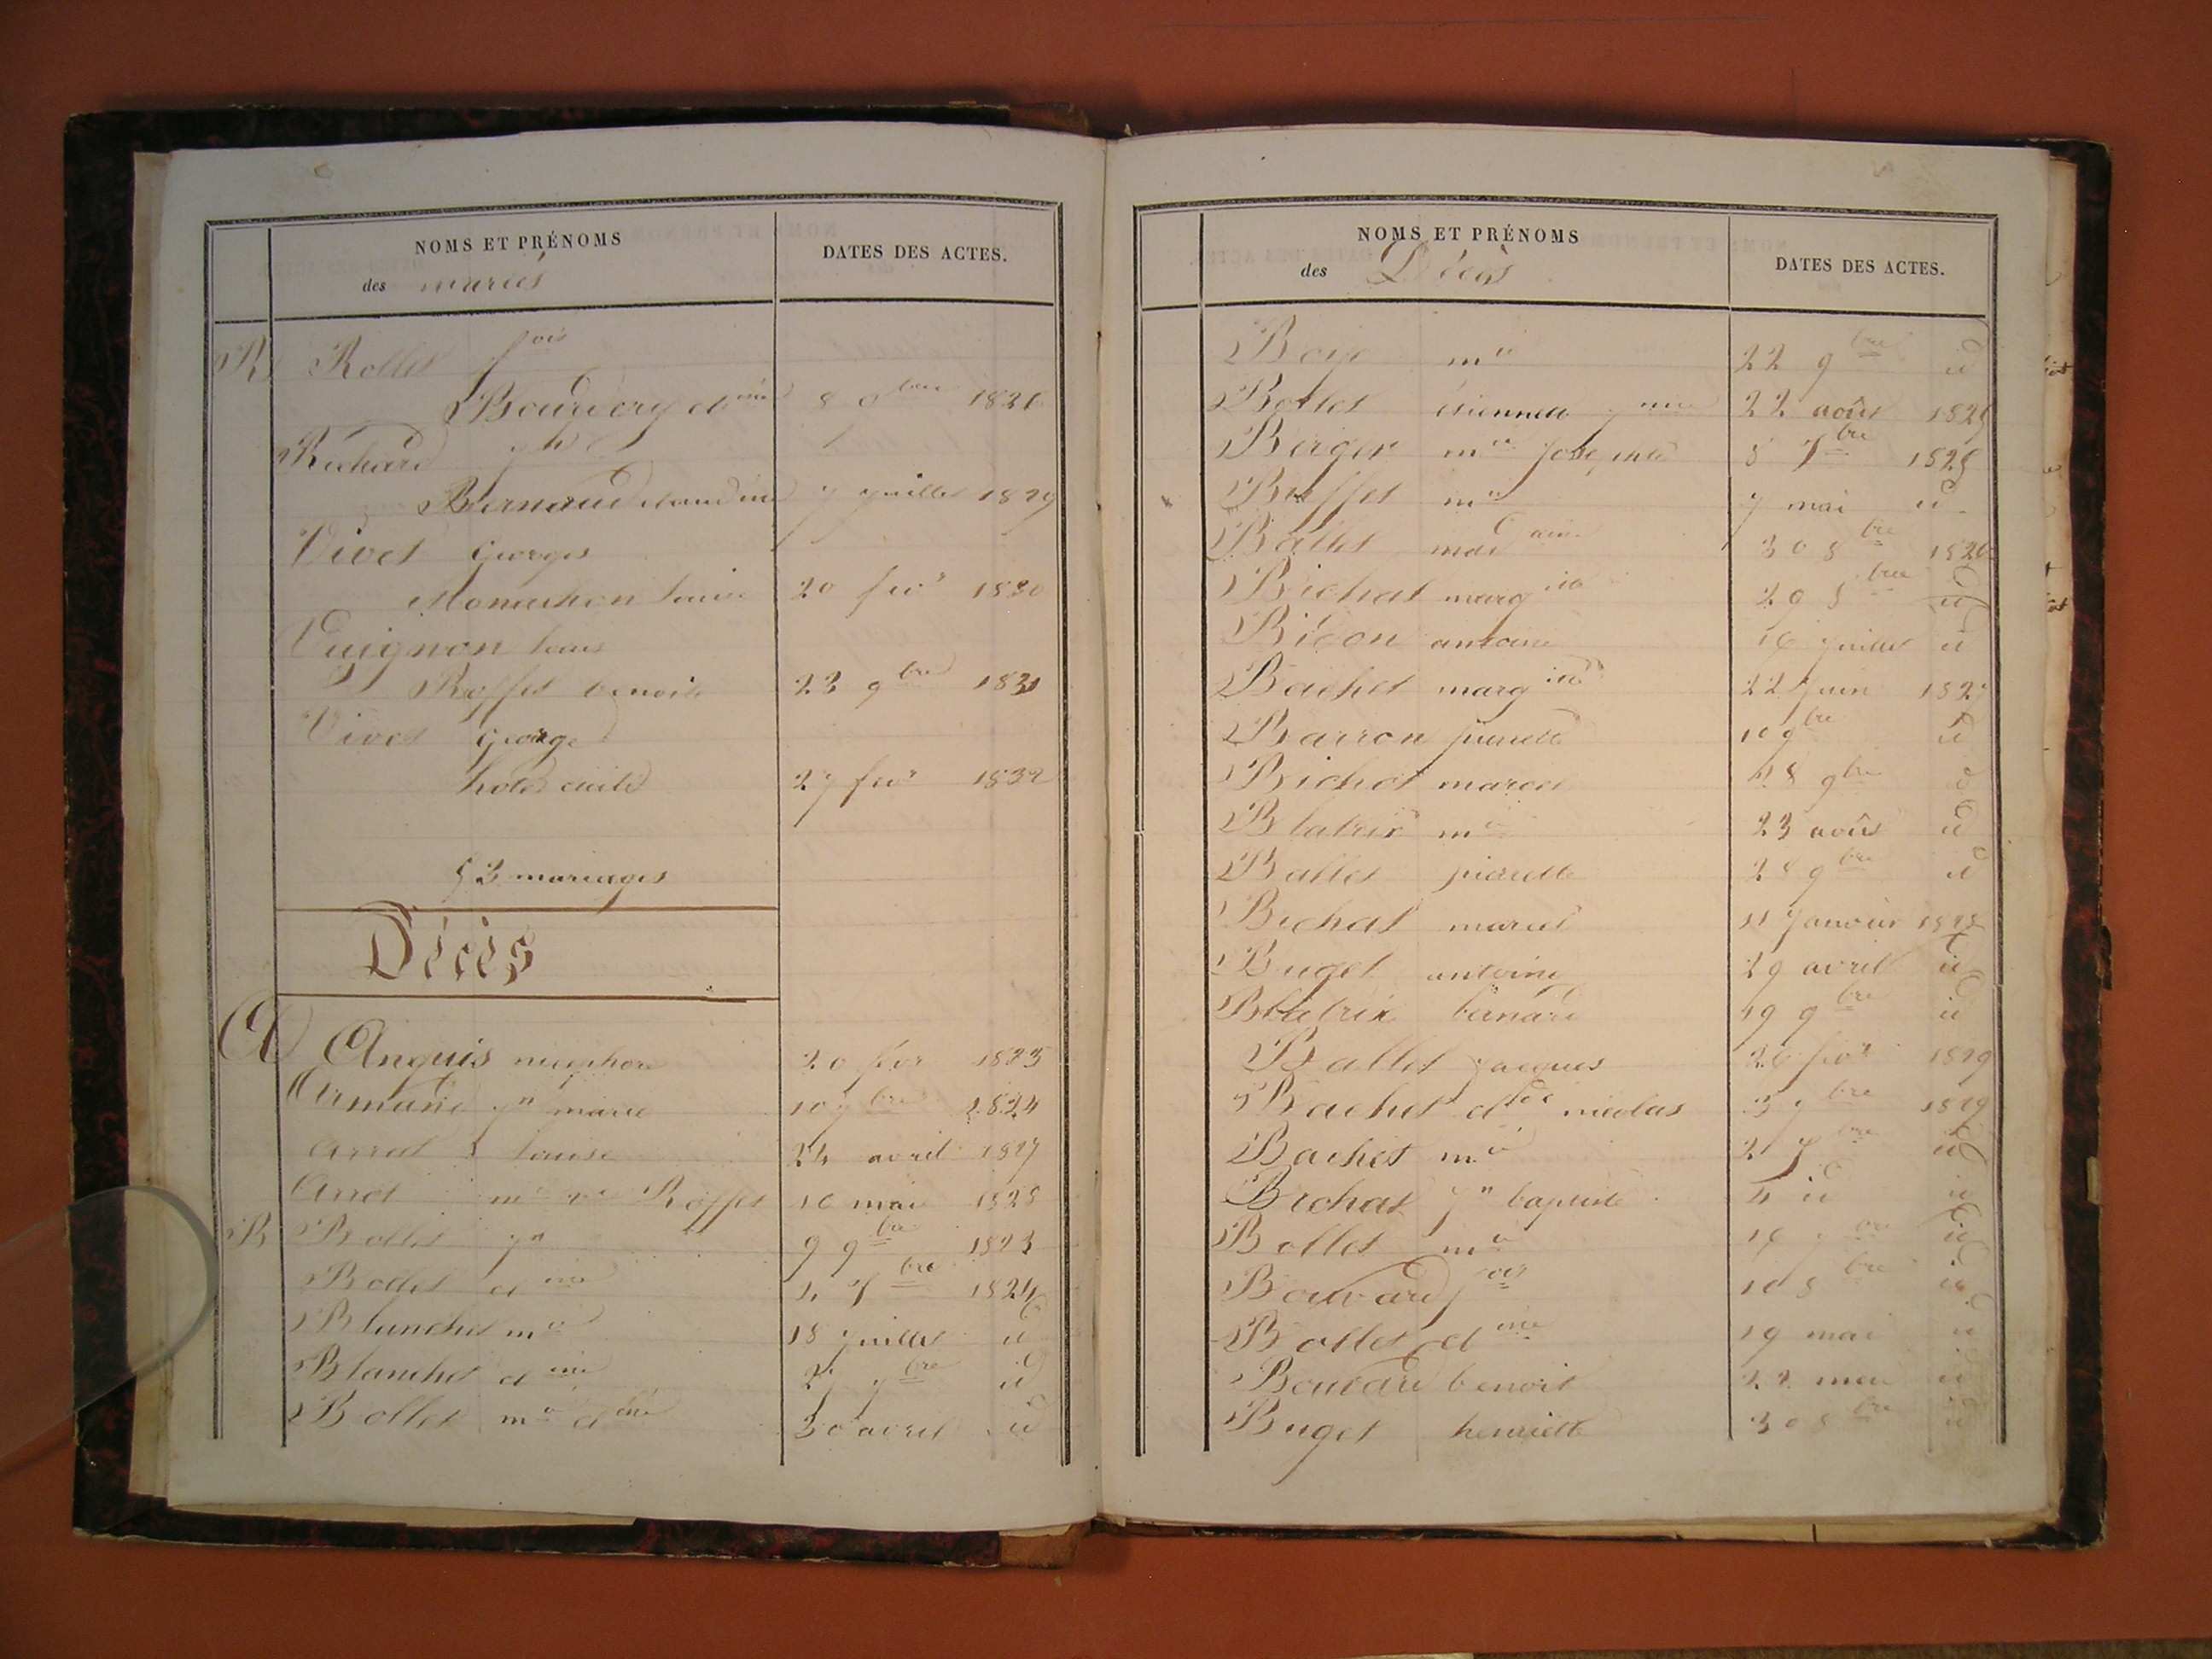 NOMS ET PRÉNOMS
des mariés
DATES DES ACTES.
R Rollet fois
Bouvery 8 1826
Richard
Bernard claudine 7 juillet 1829
Vivet Georges
Monachon louise 20 fevr 1830
Vuignon louis
Roffet benoite 23 9bre 1831
Vivet George
27 fevr 1832
53 mariages
Décès
A Anquis nicephore 20 fevr 1823
jn marie 10 1824
Arret louise 24 avril 1827
Arret me ve Roffet 10 mai 1828
B Bollet jn 9 9bre 1823
Bollet cl ine 4 7bre 1824
Blanchet me 18 juillet id
Blanchet cl ine bre id
Bollet me cl ine 30 avril id
NOMS ET PRÉNOMS
des Décès
DATES DES ACTES.
me 22 9bre id
Bollet étiennette 22 août 1825
Berger me Josephte 8 7bre 1825
Buffet me 7 mai id
Ballet 30 8bre 1826
Bichat marg ite 29 8bre id
Bicon antoine 16 juillet id
Bachet marg ite 22 juin 1827
Barron pierrette 10 9bre id
Bichat marcel 18 9bre id
Blatrix me 23 août id
Ballet pierrette 28 9bre id
Bichat marcel 11 Janvier 1828
Buget antoine 29 avril id
Blatrix bernard 19 9bre id
Ballet jacques 26 fevr 1829
Bachet cl de nicolas 3 bre 1829
Bachet me 2 7bre id
Bichat jn baptiste 4 id id
Bollet me id
Bouvard fois 10 8bre id
Bollet cl ine 19 mai id
Bouvard benoit 22 id
Buget henriette 30 8bre id